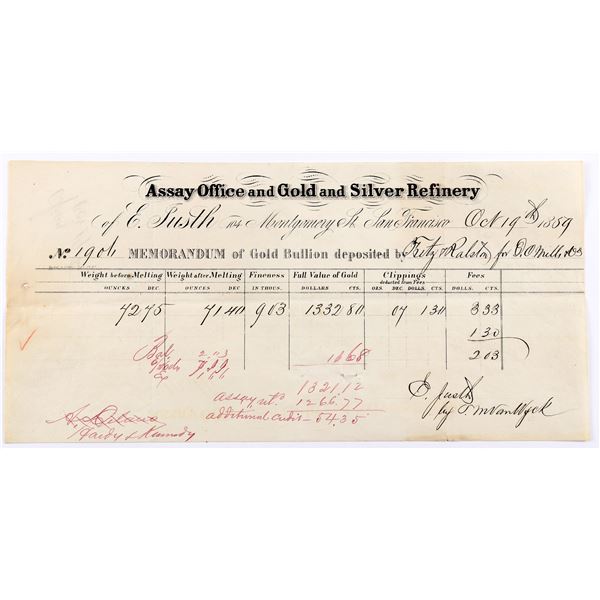 Assay Office and Gold and Silver Refinery
of E. Justh 104 Montgomery St. San Francisco Oct 19th 1859
No. 1906 MEMORANDUM of Gold Bullion deposited by Fretz & Ralston for D.O. Mills & Co
Weight before Melting Weight after Melting Fineness Full Value of Gold Clippings Fees
deducted from Fees
OUNCES DEC. OUNCES DEC. IN THOUS. DOLLARS CTS. OZS. DEC. DOLLS. CTS. DOLLS. CTS.
72 75 71 40 903 1332 80 07 1 30 3 33
1 30
Bal 2 03 11 68 2 03
1321,12
assay 1266.77
additional credit - 54.35
E. Justh
by J. M Van Wyck
Hardy & Kennedy